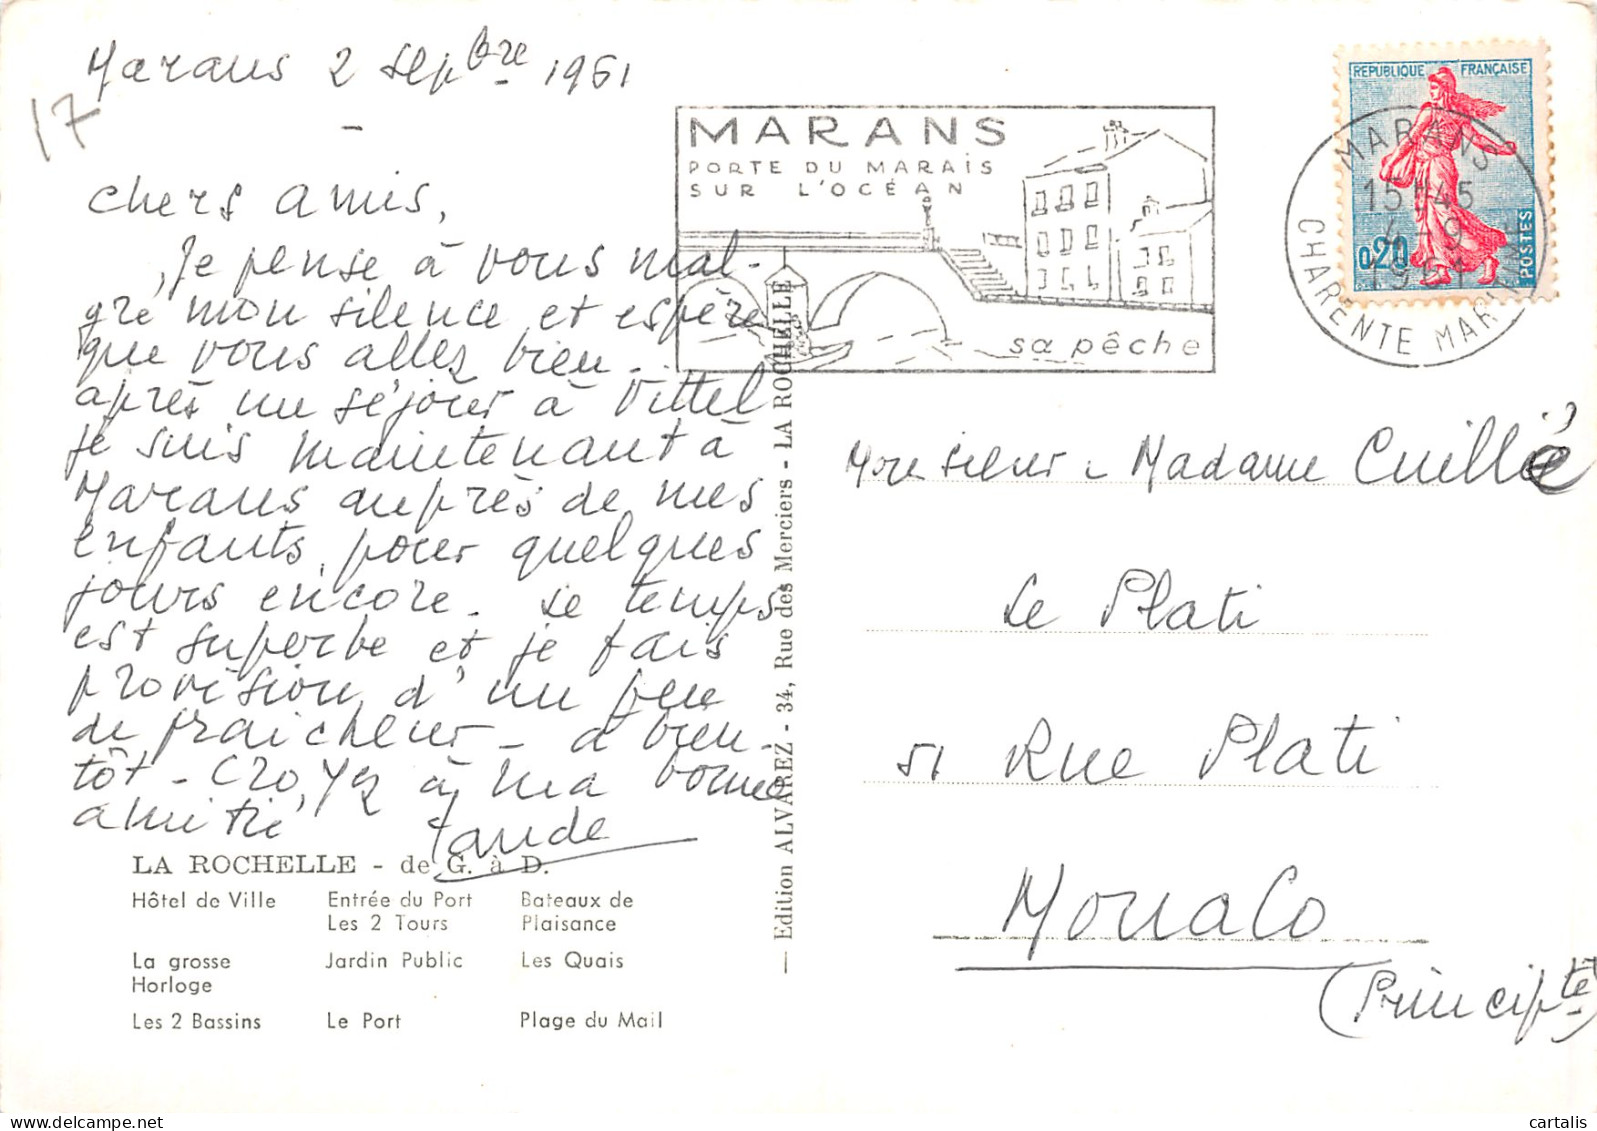 Marans 2 sepbre 1961
17
Chers amis,
Je pense à vous mal-
gré mon silence et espère
que vous allez bien -
après un séjour à Vittel
je suis maintenant à
Marans auprès de mes
enfants, pour quelques
jours encore. Le temps
est superbe et je fais
provision d'un peu
de fraicheur - à bien-
tôt - Croyez à ma bonne
amitié
LA ROCHELLE - de G. à D.
Hôtel de Ville Entrée du Port Bateaux de
Les 2 Tours Plaisance
La grosse Jardin Public Les Quais
Horloge
Les 2 Bassins Le Port Plage du Mail
— Edition ALVAREZ - 34, Rue des Merciers - LA ROCHELLE
MARANS
PORTE DU MARAIS
SUR L'OCÉAN
sa pêche
REPUBLIQUE FRANÇAISE
0,20
POSTES
MARANS
15H45
4-9
1961
CHARENTE MARITIME
Monsieur & Madame Cuillé
Le Plati
51 Rue Plati
Monaco
(Principté)
cartalis